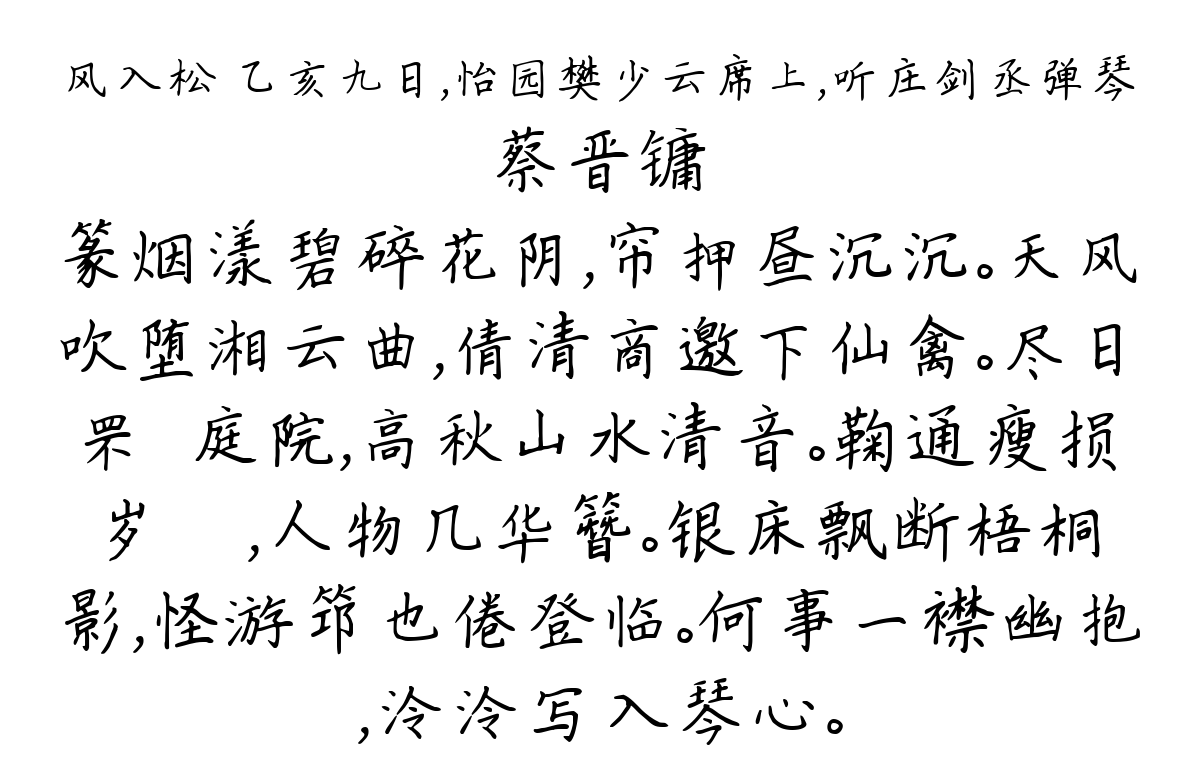 风入松 乙亥九日,怡园樊少云席上,听庄剑丞弹琴
蔡晋镛
篆烟漾碧碎花阴,帘押昼沉沉。天风
吹堕湘云曲,倩清商邀下仙禽。尽日
罘 庭院,高秋山水清音。鞠通瘦损
岁 ,人物几华簪。银床飘断梧桐
影,怪游筇也倦登临。何事一襟幽抱
,泠泠写入琴心。